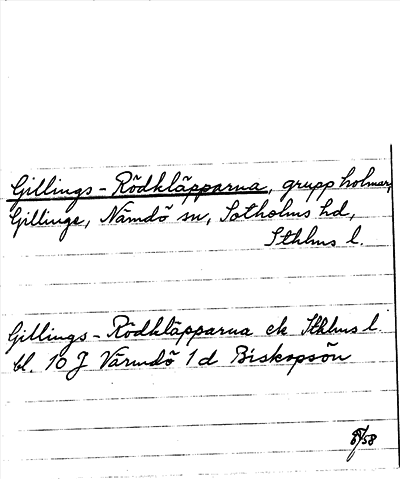 Gillings-Rödkläpparna, grupp holmar,
Gillinge, Nämdö sn, Sotholms hd,
Sthlms l.
Gillings-Rödkläpparna ek Sthlms l.
bl. 10 J Värmdö 1 d Biskopsön
/58